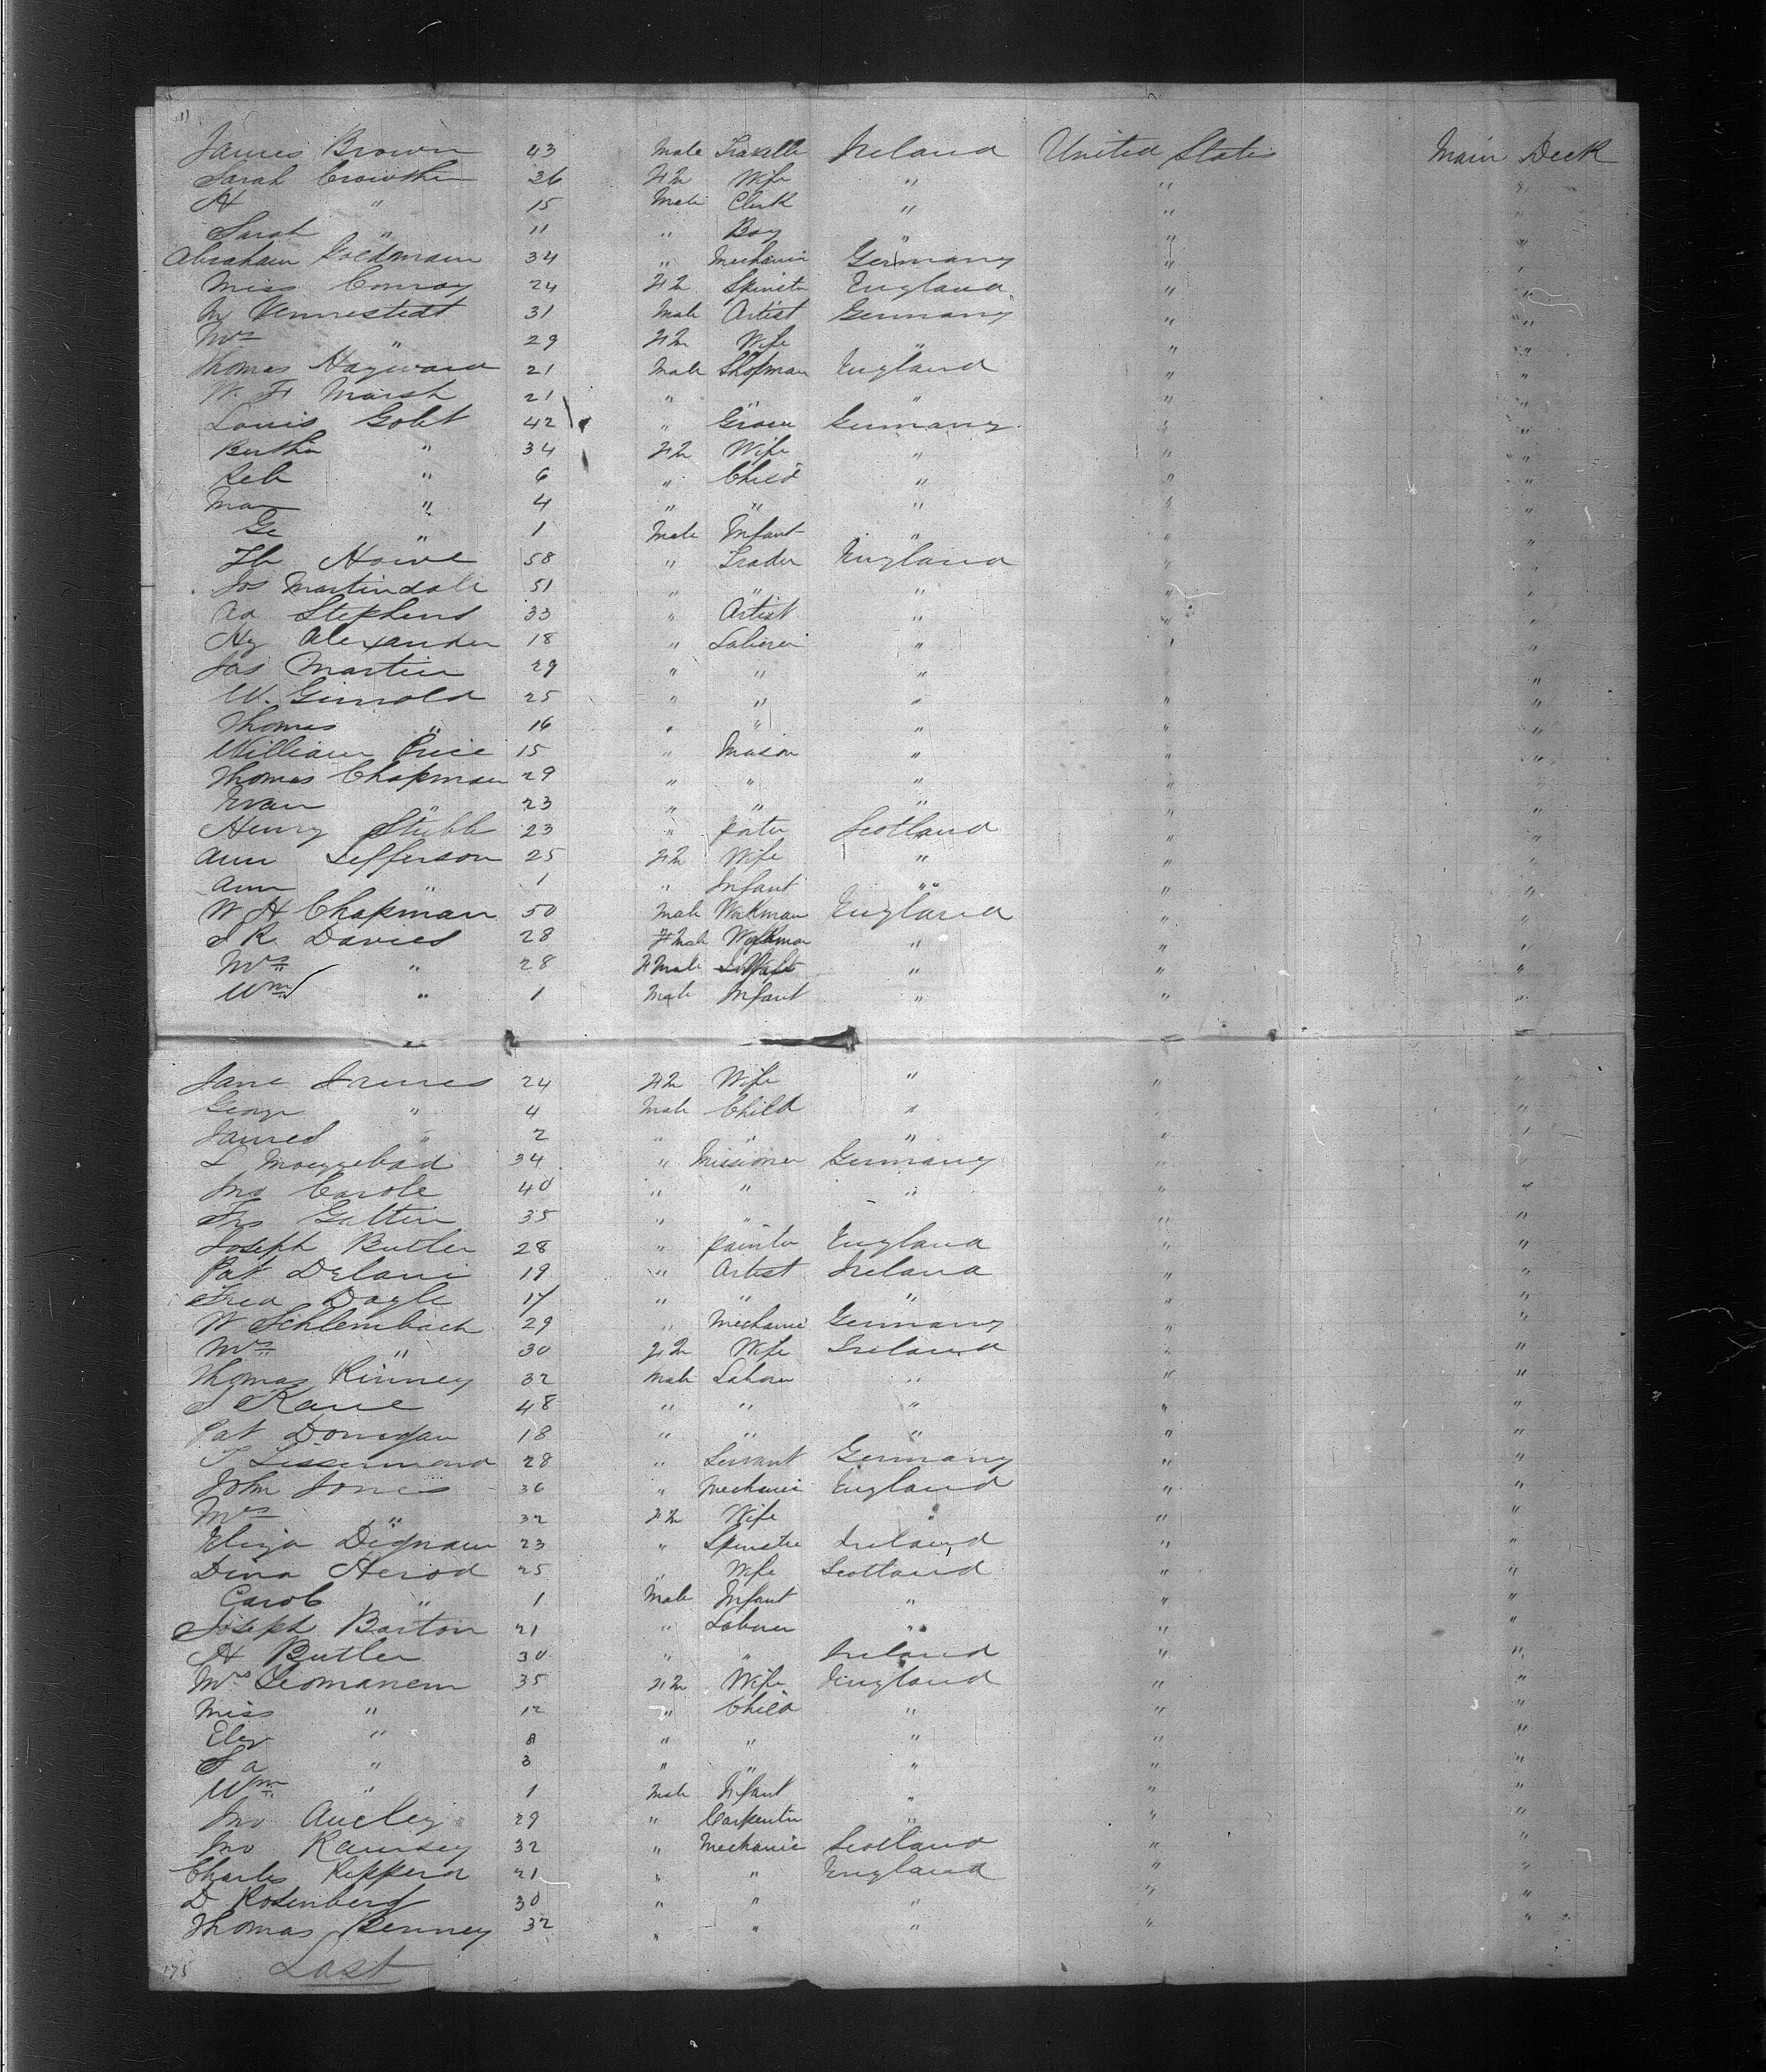 James Brown 43 Male Traveller Ireland United States Main Deck
Sarah Crowther 36 F M Wife " " "
H " 15 Male Clerk " " "
Sarah " 11 " Boy " " "
Abraham Goldmann 34 " Mechanic Germany " "
Miss Conray 24 F M Spinster England " "
M Vennestedt 31 Male Artist Germany " "
Mrs " 29 F M Wife " " "
Thomas Hayward 21 Male Shopman England " "
W. F. Marsh 21 " " " "
Louis Gobt 42 " Grocer Germany " "
Bertha " 34 F M Wife " " "
Reb " 6 " Child " " "
Mar " 4 " " " " "
Ge " 1 Male Infant " " "
Th Howe 58 " Trader England " "
Jos Martindale 51 " " " " "
Ad Stephens 33 " Artist " " "
Hy Alexander 18 " Laborer " " "
Jas Martin 29 " " " " "
W. Grinold 25 " " " " "
Thomas " 16 " " " " "
William Price 15 " Mason " " "
Thomas Chapman 29 " " " " "
Evan " 23 " " " " "
Henry Stubb 23 " porter Scotland " "
Ann Jefferson 25 F M Wife " " "
Ann " 1 " Infant " " "
W H Chapman 50 Male Workman England " "
J R Davies 28 Male Workman " " "
Mrs " 28 F Male Wife " " "
Wm " 1 Male Infant " " "
Jane Innes 24 F M Wife " " "
George " 4 Male Child " " "
James " 2 " " " " "
L 34 " Missioner Germany " "
Jno Carole 40 " " " " "
Frs Gattin 35 " " " " "
Joseph Butler 28 " painter England " "
Pat Delani 19 " Artist Ireland " "
Fred Dagle 17 " " " " "
W Schlembach 29 " Mechanic Germany " "
Mrs " 30 F M Wife Ireland " "
Thomas Kinney 32 Male Laborer " " "
J Kane 48 " " " " "
Pat Donigan 18 " " " " "
T 28 " Servant Germany " "
John Jones 36 " Mechanic England " "
Mrs " 32 F M Wife " " "
Eliza Dignam 23 " Spinster Ireland " "
Dina Herod 25 " Wife Scotland " "
Carob " 1 Male Infant " " "
Joseph Barton 21 " Laborer " " "
H Butler 30 " " Ireland " "
Mrs Leomanem 35 F M Wife England " "
Miss " 12 " Child " " "
Eliz " 8 " " " " "
S a " 3 " " " " "
Wm " 1 Male Infant " " "
Jno Aucley 29 " Carpenter " " "
Jno Ramsey 32 " Mechanic Scotland " "
Charles Kepperd 21 " " England " "
D Rosenberg 30 " " " " "
Thomas Benney 32 " " " " "
175 Last